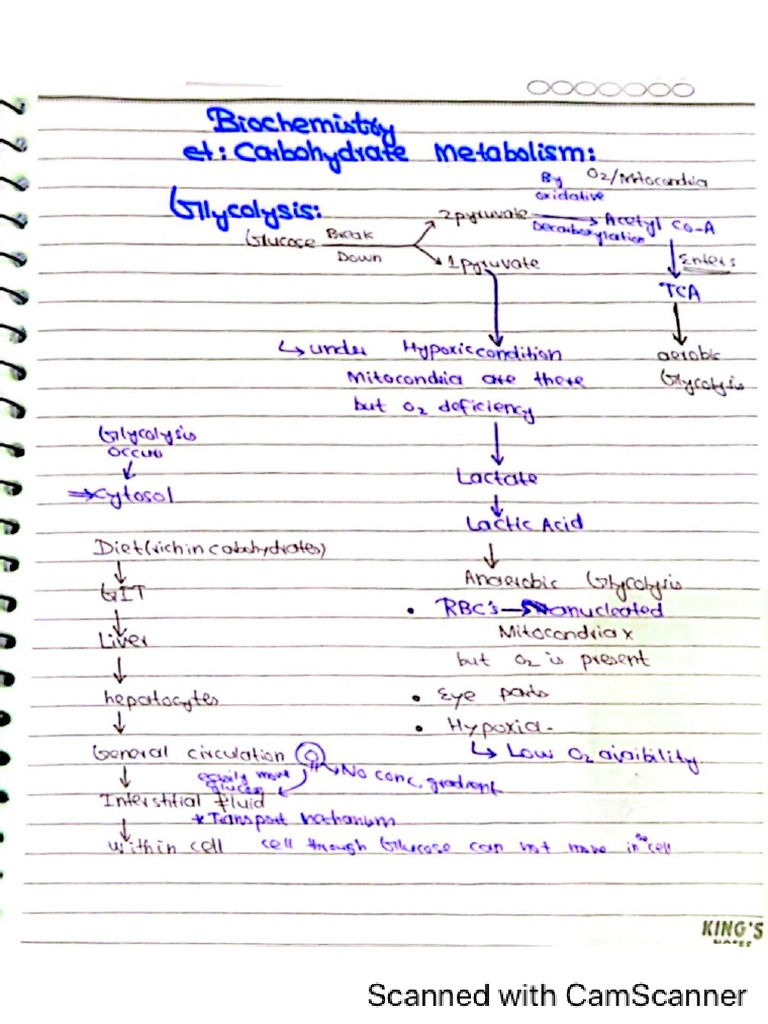 Biochemistry
et: Carbohydrate Metabolism:
By O2/Mitocondria
oxidative
Glycolysis:
2pyruvate Acetyl Co-A
Decarboxylation
Glucose Break
Down
1pyruvate
Enters
TCA
↳ under Hypoxic condition
aerobic
Glycolysis
Mitocondria are there
but O2 deficiency
Glycolysis
occurs
⇒ Cytosol
Lactate
Lactic Acid
Diet(rich in cabohydrates)
GIT
Anaerobic Glycolysis
• RBC's → anucleated
Liver
Mitocondria x
but O2 is present
hepatocytes
• Eye parts
• Hypoxia.
General circulation
↳ Low O2 avaibility.
easily move
glucose
No conc. gradient
Interstitial fluid
* Transport mechanism
within cell cell through Glucose can not move in the cell
KING'S
NOTES
Scanned with CamScanner